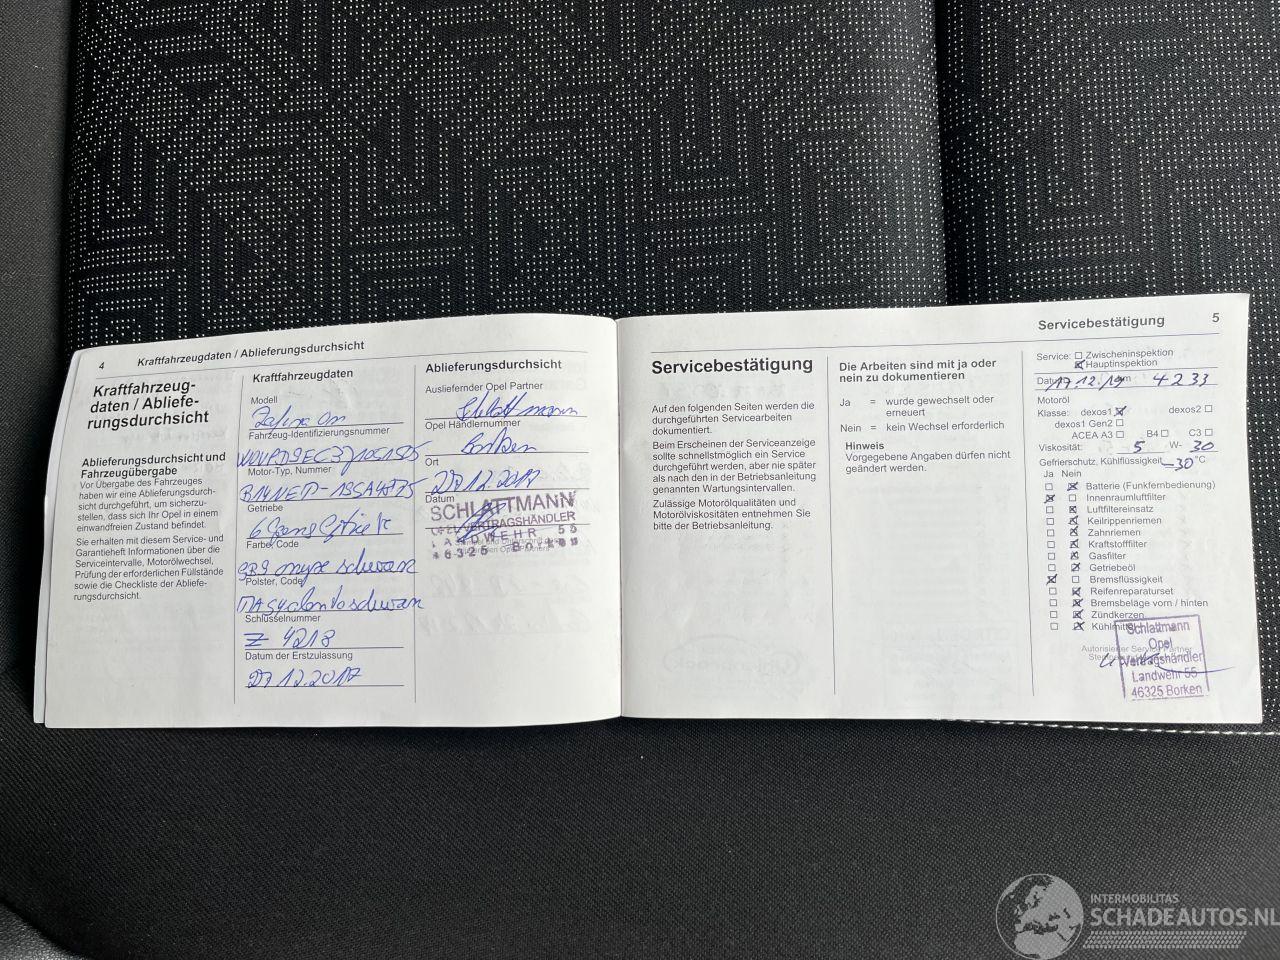 4 Kraftfahrzeugdaten / Ablieferungsdurchsicht
Kraftfahrzeug-
daten / Abliefe-
rungsdurchsicht
Ablieferungsdurchsicht und
Fahrzeugübergabe
Vor Übergabe des Fahrzeuges
haben wir eine Ablieferungsdurch-
sicht durchgeführt, um sicherzu-
stellen, dass sich Ihr Opel in einem
einwandfreien Zustand befindet.
Sie erhalten mit diesem Service- und
Garantieheft Informationen über die
Serviceintervalle, Motorölwechsel,
Prüfung der erforderlichen Füllstände
sowie die Checkliste der Abliefe-
rungsdurchsicht.
Kraftfahrzeugdaten
Modell
Zafira
Fahrzeug-Identifizierungsnummer
Motor-Typ, Nummer
Getriebe
6 Gang
Farbe, Code
schwarz
Polster, Code
schwarz
Schlüsselnummer
Z 4218
Datum der Erstzulassung
27.12.2017
Ablieferungsdurchsicht
Ausliefernder Opel Partner
Schlattmann
Opel Händlernummer
Borken
Ort
27.12.2017
Datum
SCHLATTMANN
VERTRAGSHÄNDLER
LANDWEHR 55
46325 BORKEN
Servicebestätigung 5
Servicebestätigung
Auf den folgenden Seiten werden die
durchgeführten Servicearbeiten
dokumentiert.
Beim Erscheinen der Serviceanzeige
sollte schnellstmöglich ein Service
durchgeführt werden, aber nie später
als nach den in der Betriebsanleitung
genannten Wartungsintervallen.
Zulässige Motorölqualitäten und
Motorölviskositäten entnehmen Sie
bitte der Betriebsanleitung.
Die Arbeiten sind mit ja oder
nein zu dokumentieren
Ja = wurde gewechselt oder
erneuert
Nein = kein Wechsel erforderlich
Hinweis
Vorgegebene Angaben dürfen nicht
geändert werden.
Service: Zwischeninspektion
Hauptinspektion
Datum 17.12.19 km 4233
Motoröl
Klasse: dexos1 dexos2
dexos1 Gen2
ACEA A3 B4 C3
Viskosität: 5 W- 30
Gefrierschutz, Kühlflüssigkeit -30 °C
Ja Nein
Batterie (Funkfernbedienung)
Innenraumluftfilter
Luftfiltereinsatz
Keilrippenriemen
Zahnriemen
Kraftstofffilter
Gasfilter
Getriebeöl
Bremsflüssigkeit
Reifenreparaturset
Bremsbeläge vorn / hinten
Zündkerzen
Kühlmittel
Autorisierter Service Partner
Schlattmann
Opel
Vertragshändler
Landwehr 55
46325 Borken
INTERMOBILITAS
SCHADEAUTOS.NL